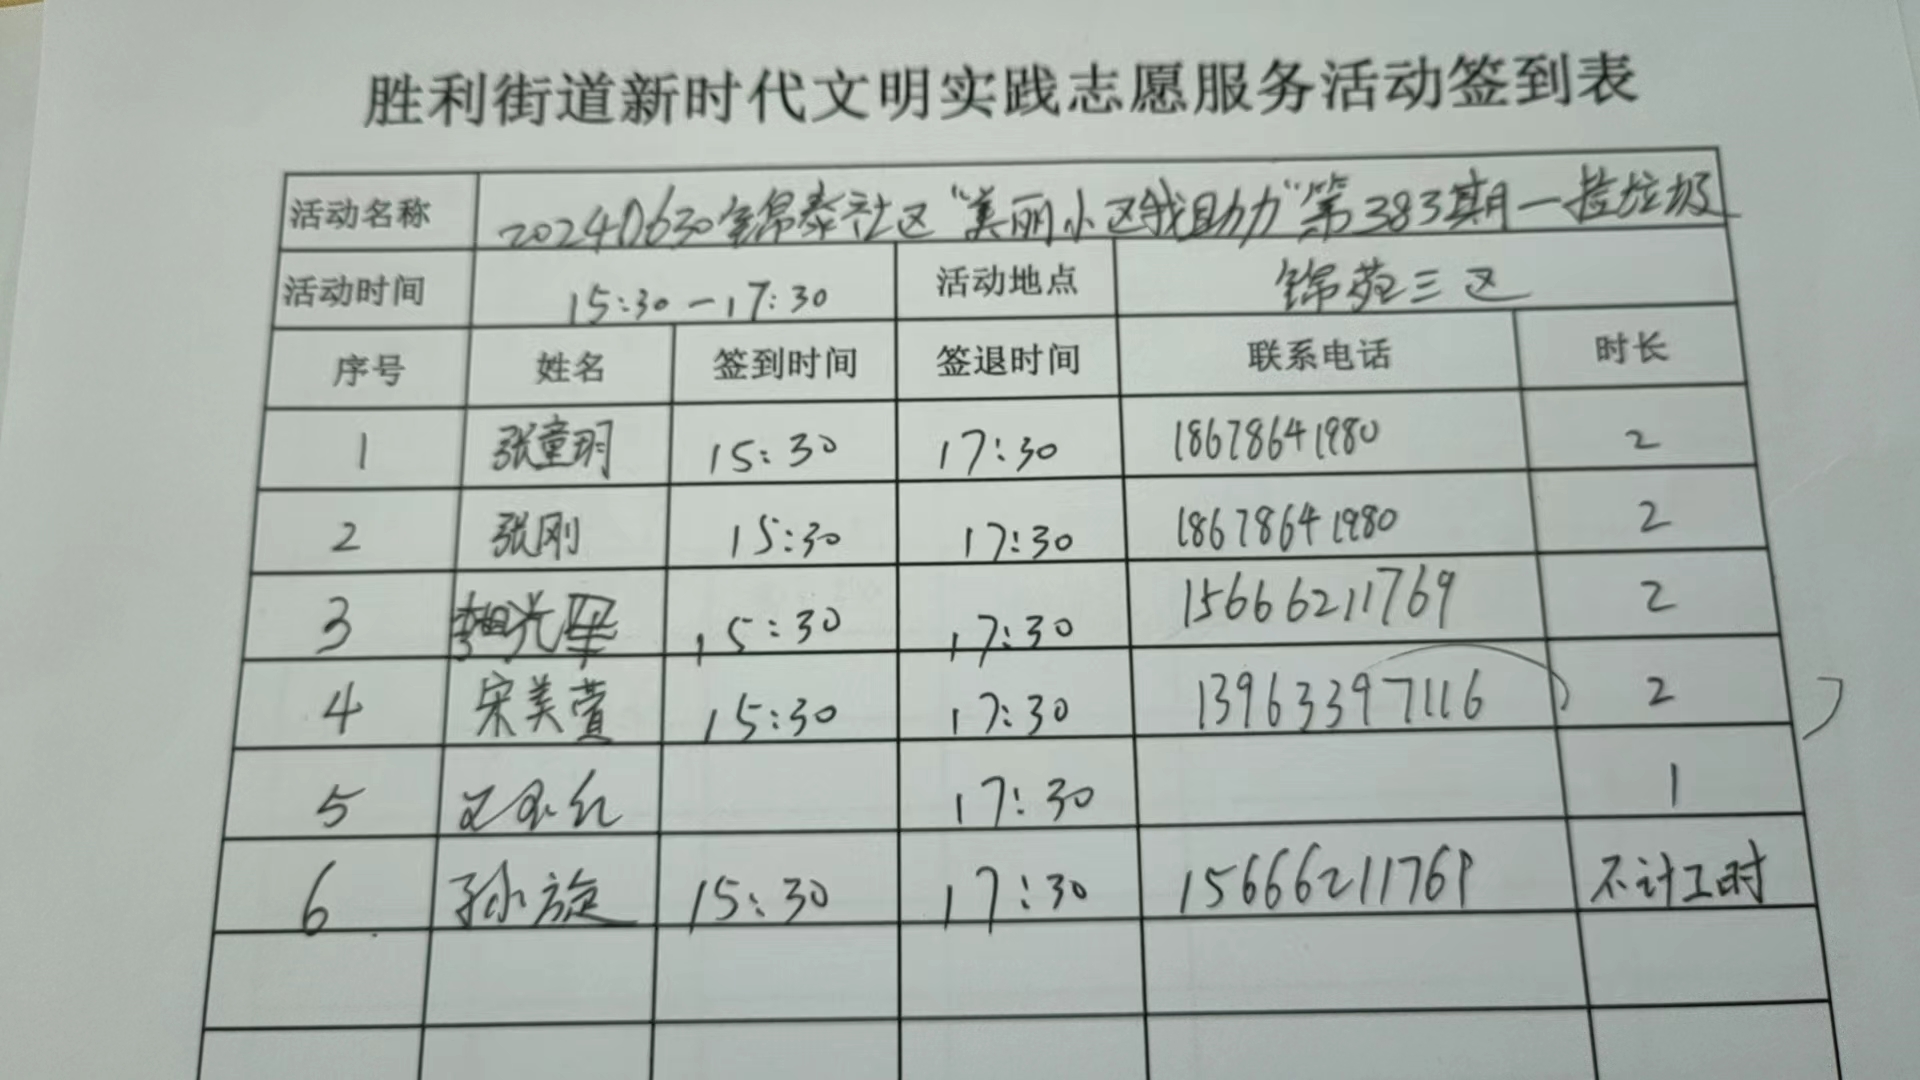 胜利街道新时代文明实践志愿服务活动签到表
活动名称 20240630锦泰社区“美丽小区我助力”第383期一捡垃圾
活动时间 15:30一17:30 活动地点 锦苑三区
序号 姓名 签到时间 签退时间 联系电话 时长
1 张童玥 15:30 17:30 18678641980 2
2 张刚 15:30 17:30 18678641980 2
3 15:30 17:30 15666211769 2
4 宋美萱 15:30 17:30 13963397116 2
5 17:30 1
6 孙旋 15:30 17:30 15666211769 不计工时